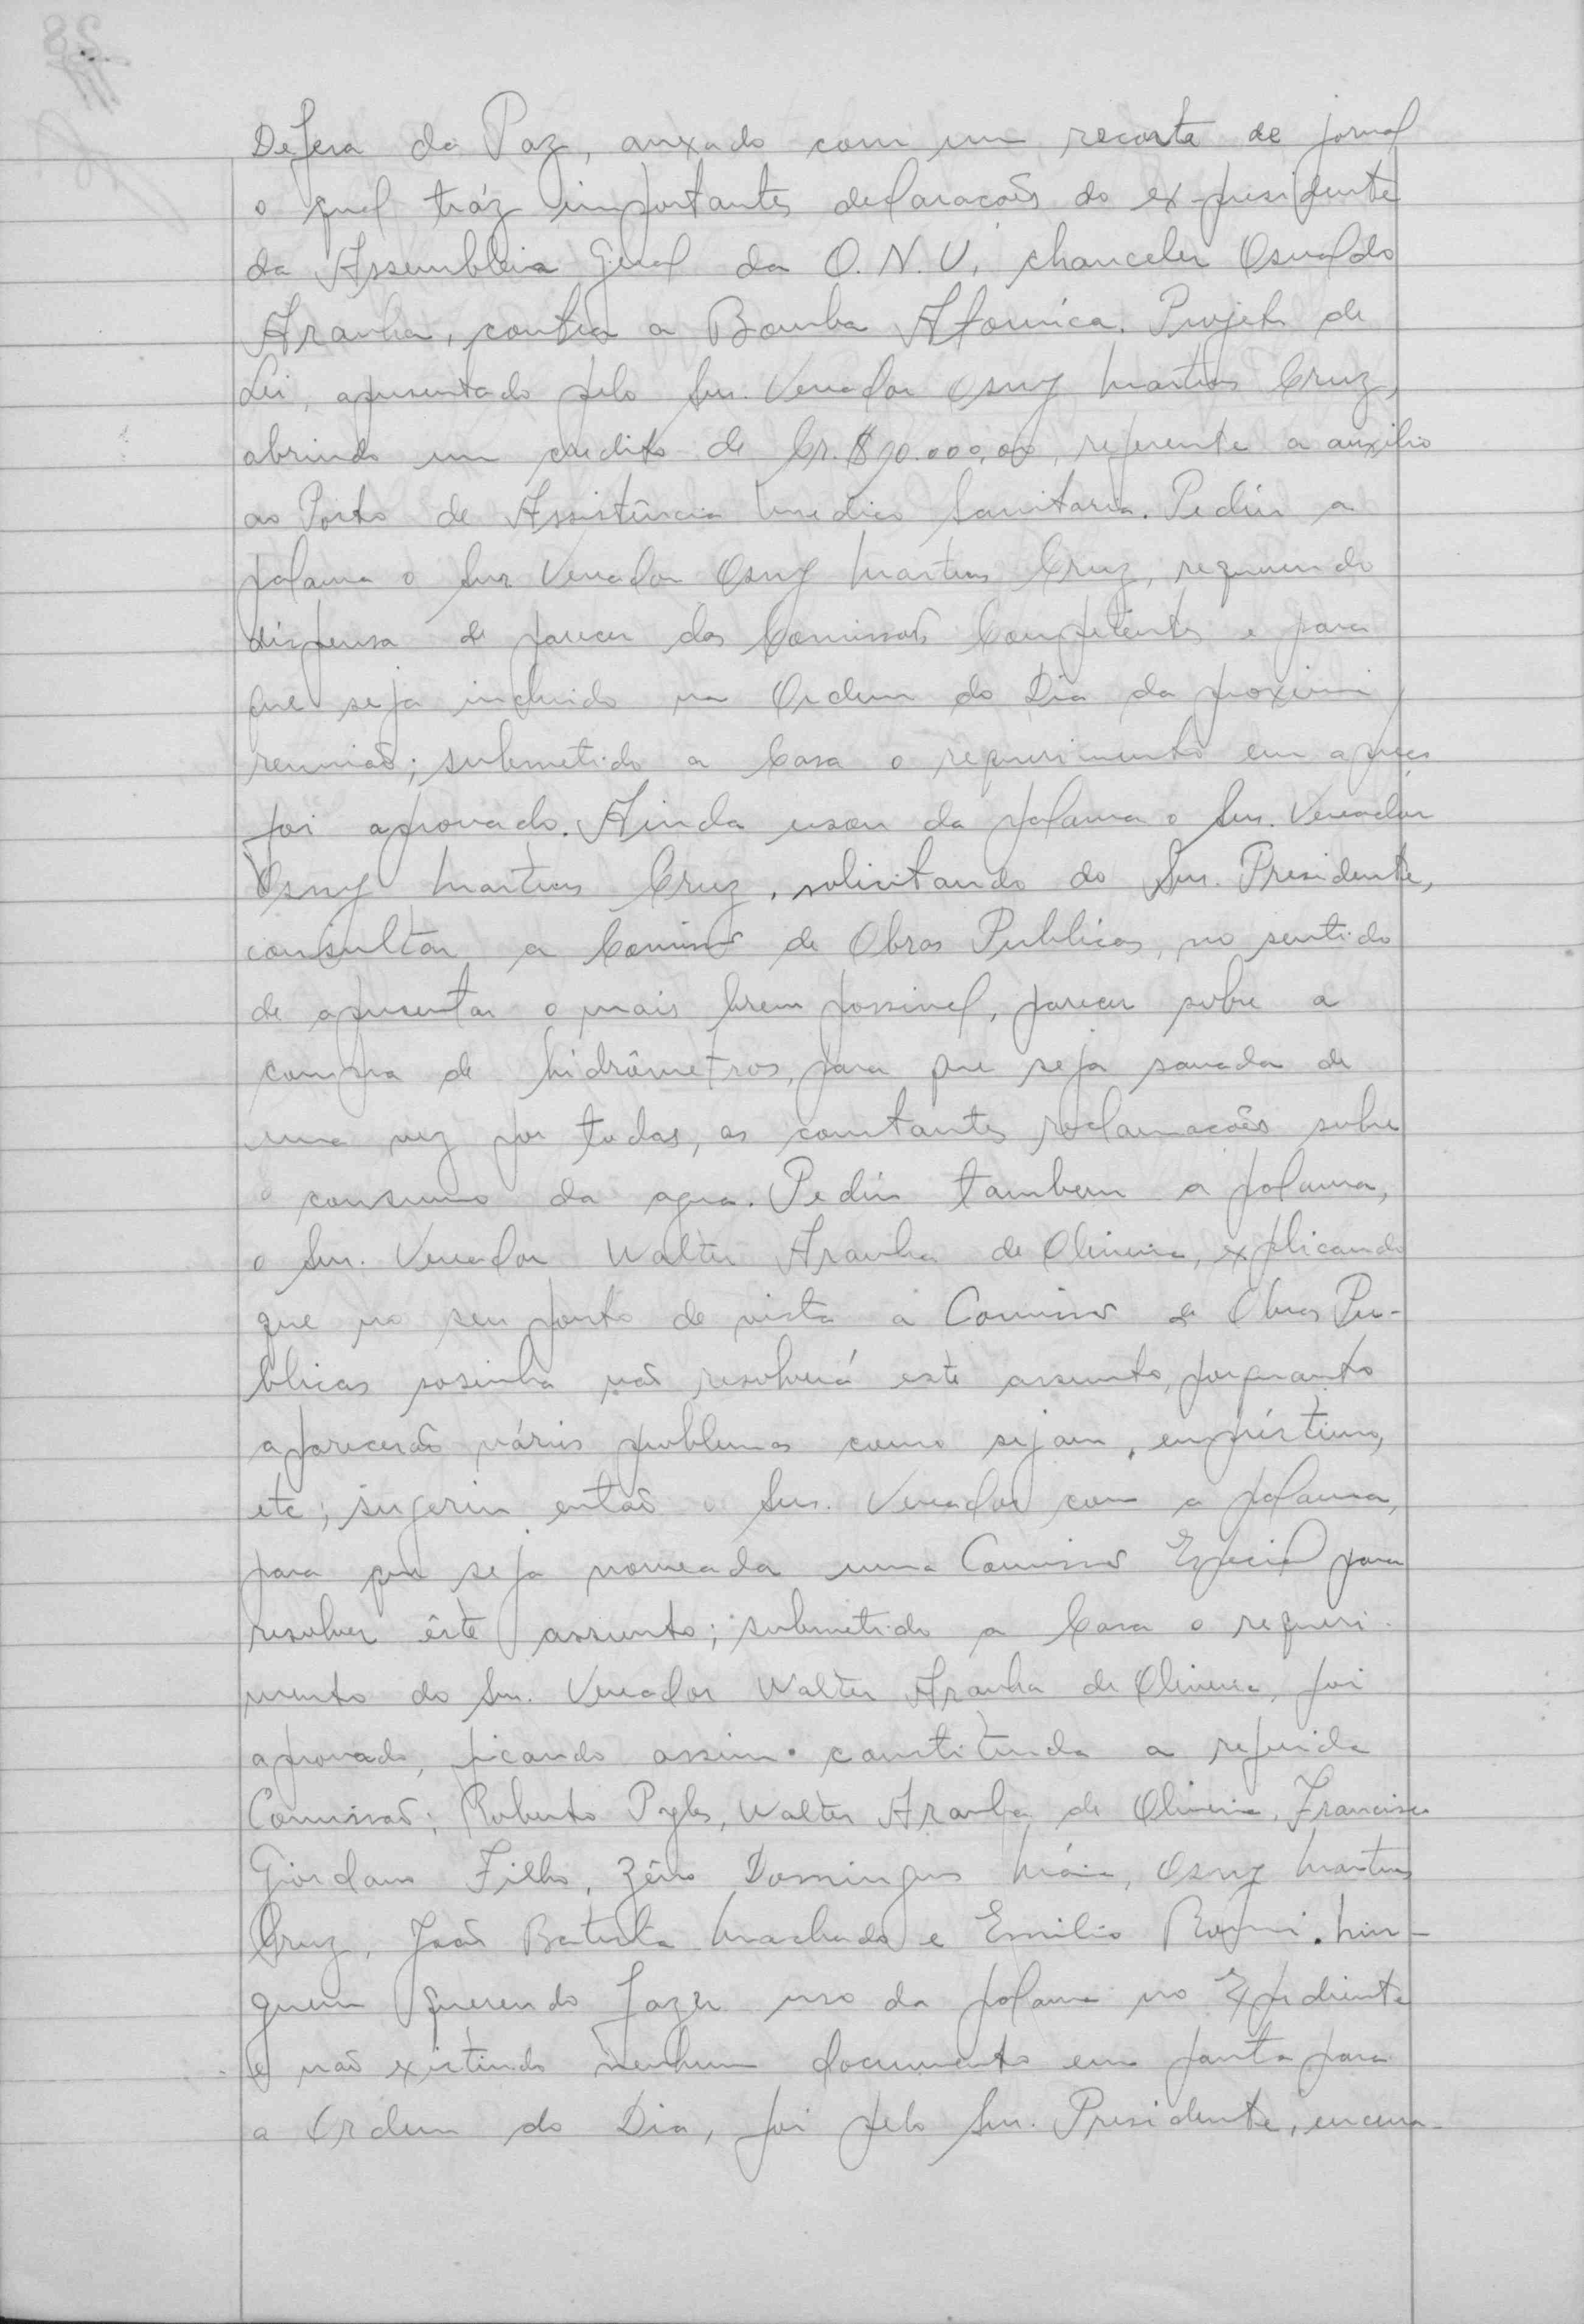 Defesa da Paz, anexado com um recorte de jornal
o qual tráz importantes declaracões do ex-presidente
da Assembleia Geral da O.N.U. chanceler Osvaldo
Aranha, contra a Bomba Atomica. Projeto de
Lei, apresentado pelo Snr. Vereador Osny Martins Cruz,
abrindo um credito de Cr.$ 90.000,00, referente a auxilio
ao Posto de Assistência Medico Sanitaria. Pediu a
palavra o Snr Vereador Osny Martins Cruz, requerendo
dispensa de parecer das Comissões Competentes e para
que seja incluido na Ordem do Dia da proxima
reunião; submetido a Casa o requerimento em apreço
foi aprovado. Ainda usou da palavra o Snr. Vereador
Osny Martins Cruz, solicitando do Snr. Presidente,
consultar a Comissão de Obras Publicas, no sentido
de apresentar o mais breve possivel, parecer sobre a
compra de hidrômetros, para que seja sanada de
uma vez por todas, as constantes reclamacões sobre
o consumo da agua. Pediu tambem a palavra,
o Snr. Vereador Walter Aranha de Oliveira, explicando
que no seu ponto de vista a Comissão de Obras Pu-
blicas sosinha não resolverá este assunto, porquanto
aparecerão vários problemas como sejam, empréstimo,
etc; sugeriu então o Snr. Vereador com a palavra,
para que seja nomeada uma Comissão Especial para
resolver êste assunto; submetido a Casa o requeri-
mento do Snr. Vereador Walter Aranha de Oliveira, foi
aprovado, ficando assim constituida a referida
Comissão; Roberto Pyles, Walter Aranha de Oliveira, Francisco
Giordano Filho, Zêno Domingues Maia, Osny Martins
Cruz, João Batista Machado e Emilio Romi. Nin-
guem querendo fazer uso da palavra no Expediente
e não existindo nenhum documento em pauta para
a Ordem do Dia, foi pelo Snr. Presidente, encerra-